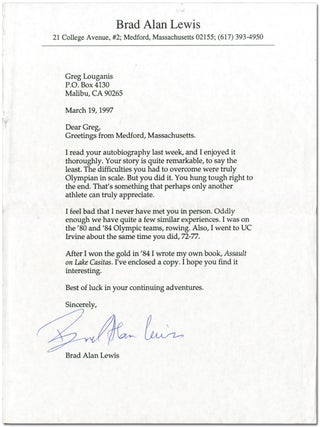 Brad Alan Lewis
21 College Avenue, #2; Medford, Massachusetts 02155; (617) 393-4950
Greg Louganis
P.O. Box 4130
Malibu, CA 90265
March 19, 1997
Dear Greg,
Greetings from Medford, Massachusetts.
I read your autobiography last week, and I enjoyed it
thoroughly. Your story is quite remarkable, to say the
least. The difficulties you had to overcome were truly
Olympian in scale. But you did it. You hung tough right to
the end. That's something that perhaps only another
athlete can truly appreciate.
I feel bad that I never have met you in person. Oddly
enough we have quite a few similar experiences. I was on
the '80 and '84 Olympic teams, rowing. Also, I went to UC
Irvine about the same time you did, 72-77.
After I won the gold in '84 I wrote my own book, Assault
on Lake Casitas. I've enclosed a copy. I hope you find it
interesting.
Best of luck in your continuing adventures.
Sincerely,
Brad Alan Lewis
Brad Alan Lewis